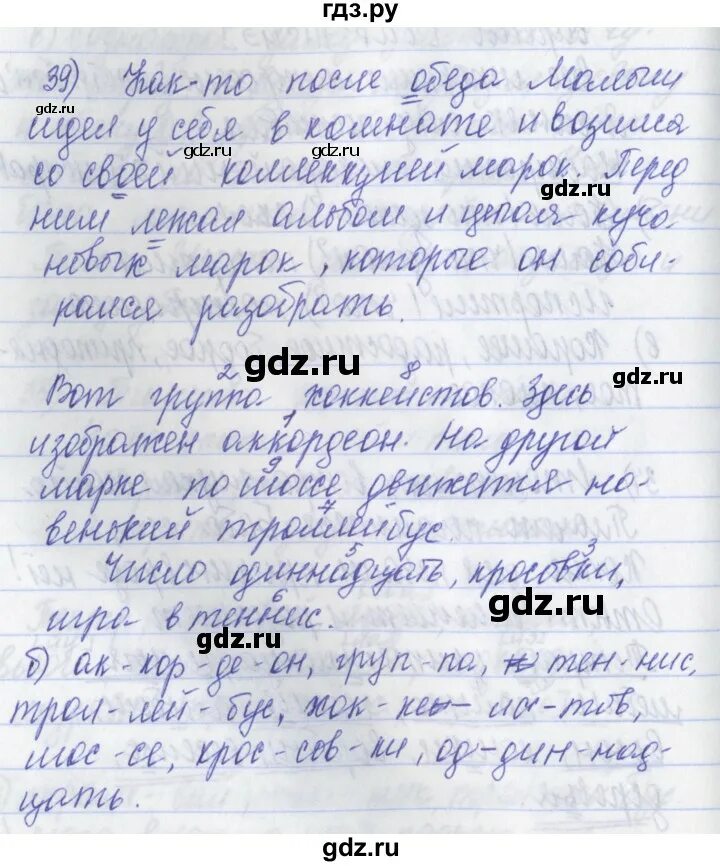 гдз.ру
39) Как-то после обеда Малыш
gdz.ru
сидел у себя в комнате и возился
gdz.ru gdz.ru
со своей коллекцией марок. Перед
gdz.ru
ним лежал альбом и целая куча
новых марок, которые он соби-
рался разобрать.
gdz.ru
gdz.ru
2 8
Вот группа хоккеистов. Здесь
1
изображен аккордеон. На другой
9
марке по шоссе движется но-
7
венький троллейбус.
5 3
Число одиннадцать, кросовки,
gdz.ru
6
игра в теннис.
gdz.ru gdz.ru
б) ак-кор-де-он, груп-па, тен-нис,
трол-лей-бус, хок-ке- ис-тов,
шос-се, крос-сов-ки, од-дин-над-
цать.
gdz.ru gdz.ru
gdz.ru